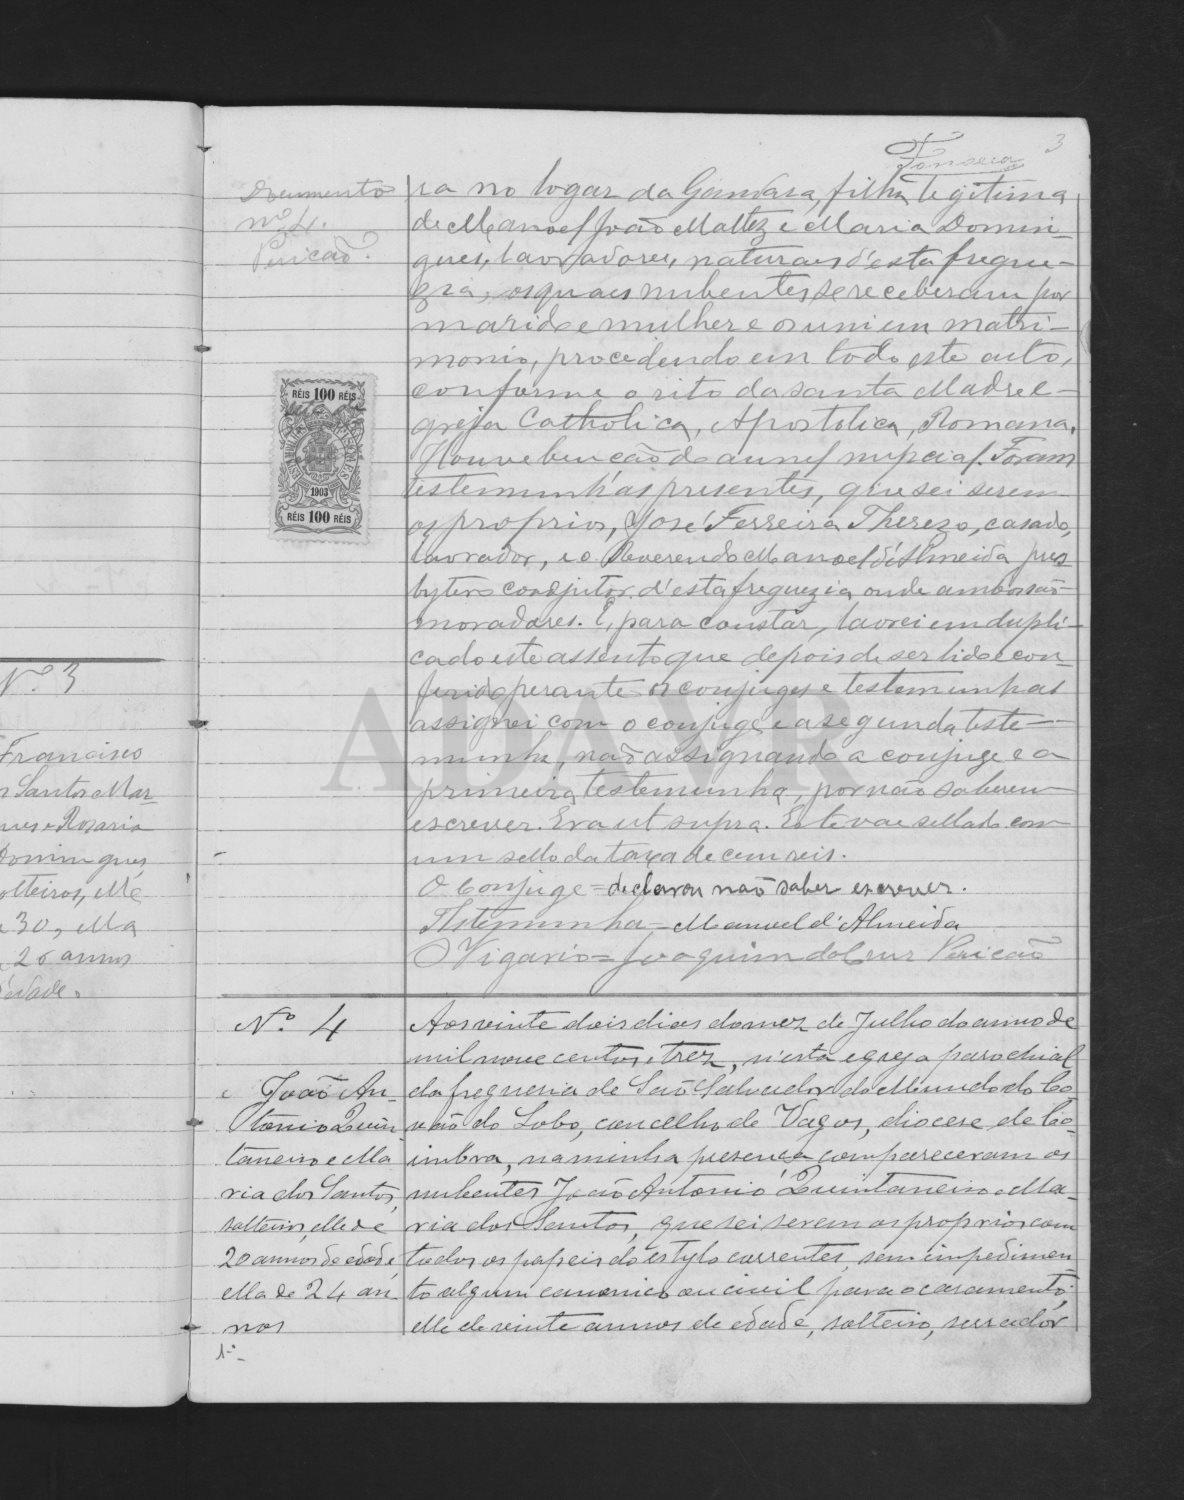 Fonseca
3
Documento
nº 4.
Pericão.
ra no logar da Gandara, filha legitima
de Manoel João Maltez e Maria Domin-
gues, lavradores, naturaes d'esta fregue-
zia, os quaes nubentes se receberam por
marido e mulher e os uni em matri-
monio, procedendo em todo este acto,
conforme o rito da santa Madre E-
greja Catholica, Apostolica, Romana.
Houve benção do annel nupcial. Foram
testemunhas presentes, que sei serem
os proprios, José Ferreira Therezo, casado,
lavrador, e o Reverendo Manoel d'Almeida pres-
bytero coadjutor d'esta freguezia, onde ambos são
moradores. E, para constar, lavrei em dupli-
cado este assento que depois de ser lido e con-
ferido perante os conjuges e testemunhas
assignei com o conjuge e a segunda teste-
munha, não assignando a conjuge e a
primeira testemunha, por não saberem
escrever. Era ut supra. Este vae sellado com
um sello da taxa de cem reis.
O Conjuge = declarou não saber escrever.
Testemunha = Manuel d'Almeida
O Vigario = Joaquim da Cruz Pericão
RÉIS 100 RÉIS
1903
RÉIS 100 RÉIS
ADAVR
Nº 3
Francisco
Santos Mar-
ques e Rosaria
Domingues,
solteiros, elle
30, ella
20 annos
d'edade.
Nº 4
João An-
tonio Quin-
taneiro e Ma
ria dos Santos,
solteiros, elle de
20 annos de edade,
ella de 24 an-
nos
1-º
Aos vinte dois dias do mez de Julho do anno de
mil nove centos e trez, n'esta egreja parochial
da freguesia de São Salvador do Mundo do Co-
vão do Lobo, concelho de Vagos, diocese de Co-
imbra, na minha presença compareceram os
nubentes João Antonio Quintaneiro e Ma-
ria dos Santos, que sei serem os proprios com
todos os papeis do estylo correntes, sem impedimen-
to algum canonico ou civil para o casamento;
elle de vinte annos de edade, solteiro, serrador